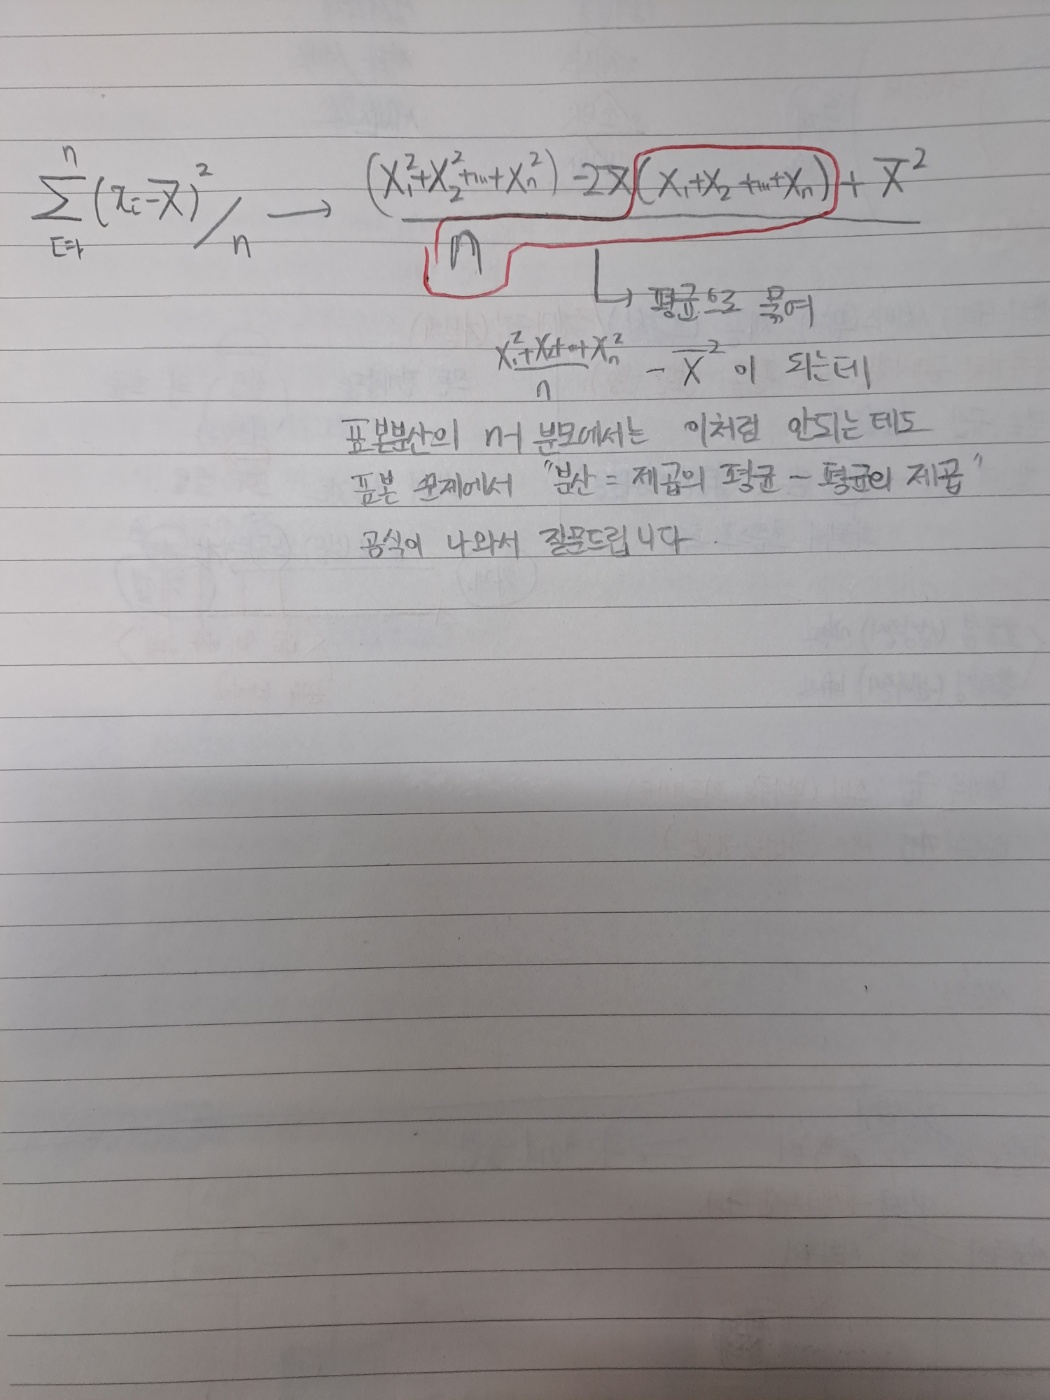 n
∑ (xᵢ-x̄)²/n → (x₁²+x₂²+...+xₙ²) -2x̄(x₁+x₂+...+xₙ) + x̄²
i=1
n
↳ 평균으로 묶여
x₁²+x₂²+...+xₙ² / n - x̄² 이 되는데
표본분산의 n-1 분모에서는 이처럼 안되는 테도
표본 문제에서 "분산 = 제곱의 평균 - 평균의 제곱"
공식이 나와서 질문드립니다.